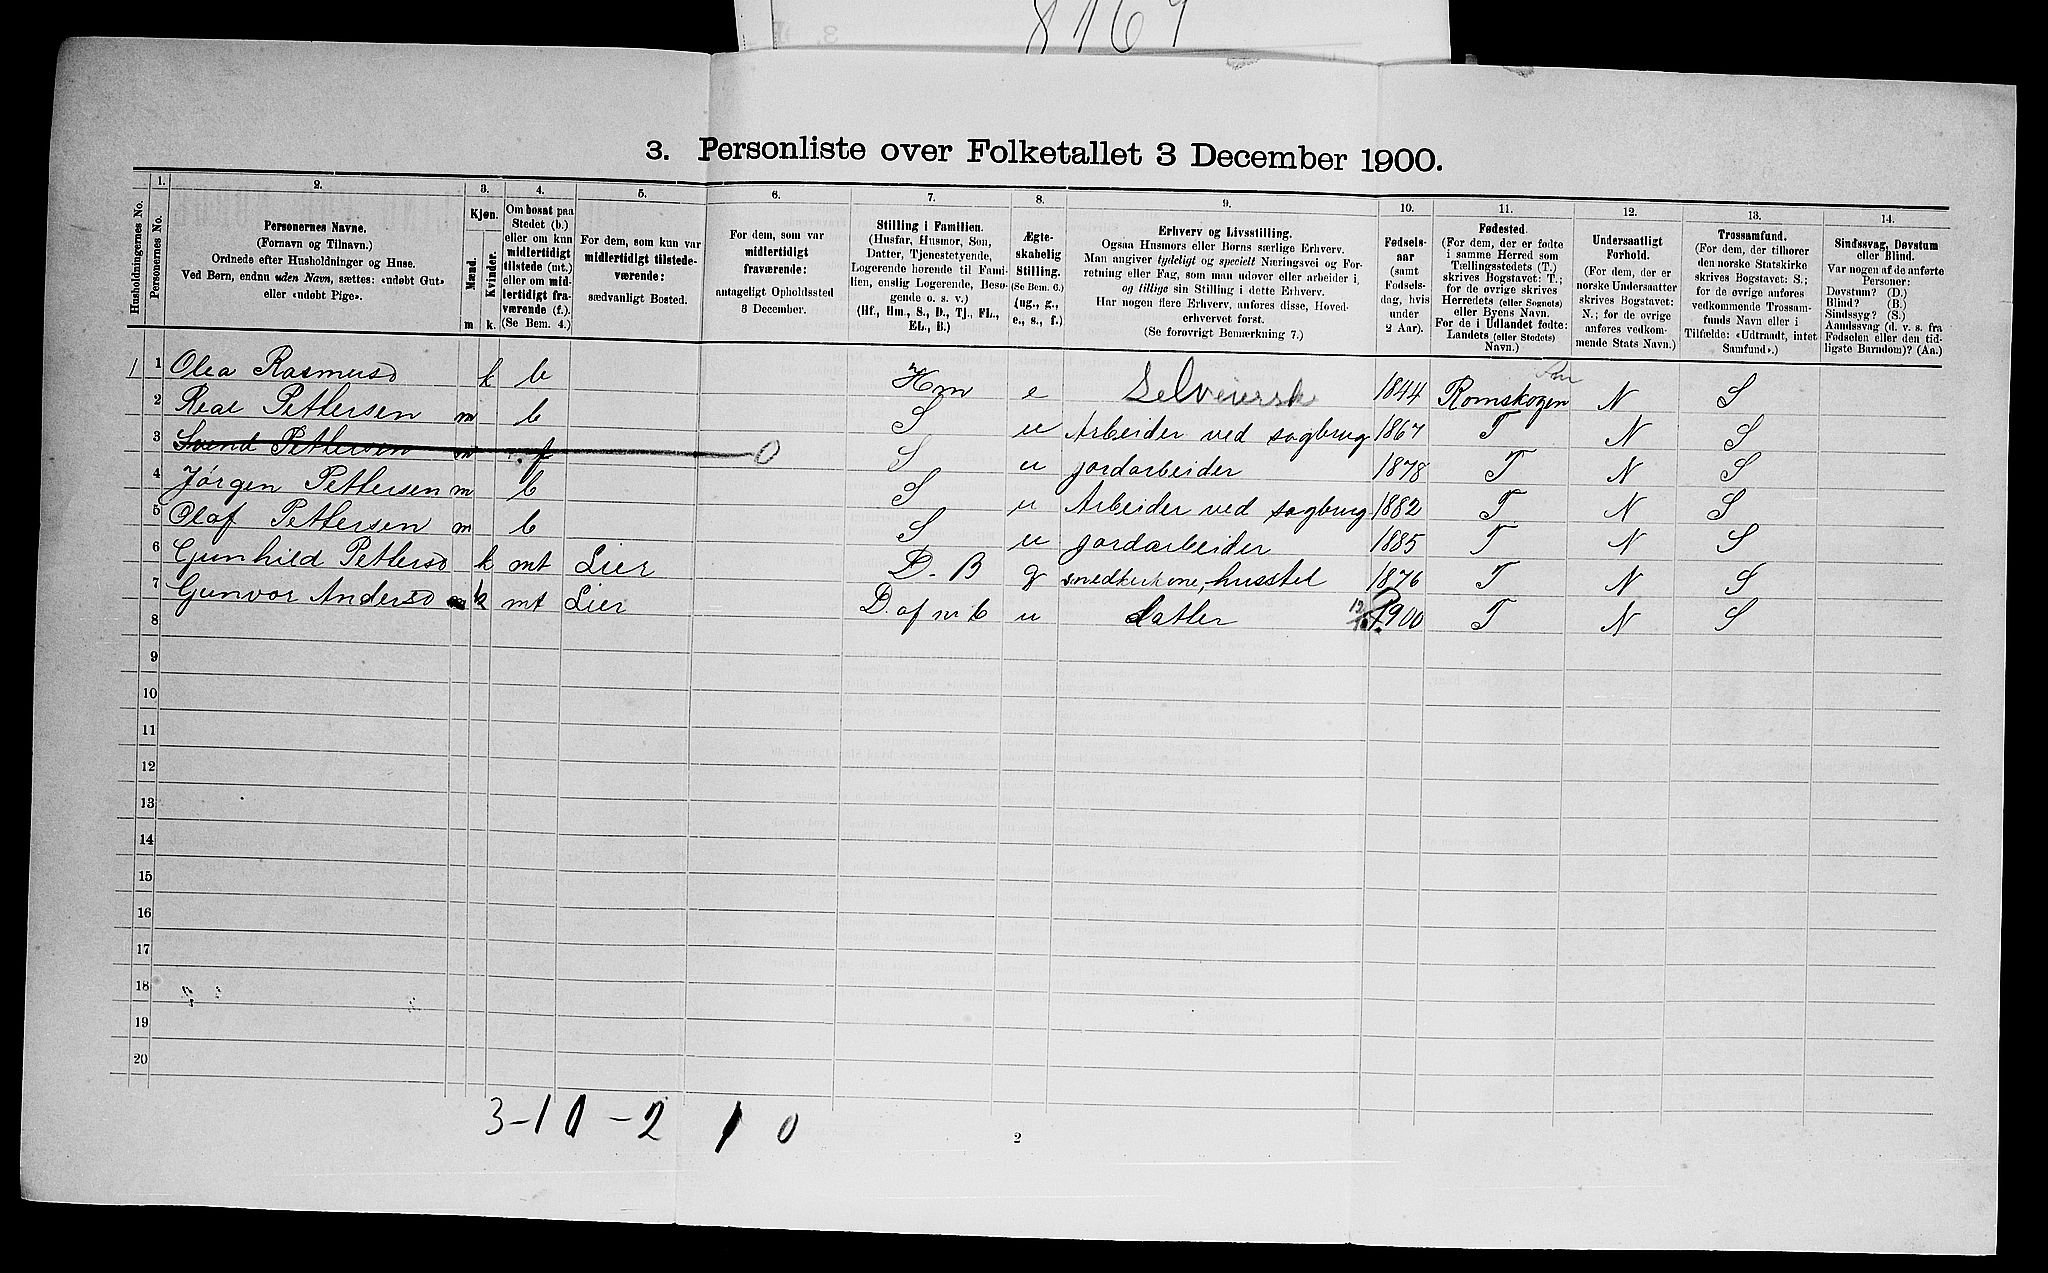 8169
3. Personliste over Folketallet 3 December 1900.
1. 2. 3. 4. 5. 6. 7. 8. 9. 10. 11. 12. 13. 14.
Husholdningernes No.
Personernes No.
Personernes Navne.
(Fornavn og Tilnavn.)
Ordnede efter Husholdninger og Huse.
Ved Børn, endnu uden Navn, sættes: «udøbt Gut»
eller «udøbt Pige».
Kjøn.
Mænd. Kvinder.
m k.
Om bosat paa
Stedet (b.)
eller om kun
midlertidigt
tilstede (mt.)
eller om mid-
lertidigt fra-
værende (f.).
(Se Bem. 4.)
For dem, som kun var
midlertidigt tilstede-
værende:
sædvanligt Bosted.
For dem, som var
midlertidigt
fraværende:
antageligt Opholdssted
3 December.
Stilling i Familien.
(Husfar, Husmor, Søn,
Datter, Tjenestetyende,
Logerende hørende til Fami-
lien, enslig Logerende, Besø-
gende o. s. v.)
(Hf., Hm., S., D., Tj., FL.,
EL., B.)
Ægte-
skabelig
Stilling.
(Se Bem. 6.)
(ug., g.,
e., s., f.)
Erhverv og Livsstilling.
Ogsaa Husmors eller Børns særlige Erhverv.
Man angiver tydeligt og specielt Næringsvei og For-
retning eller Fag, som man udøver eller arbeider i,
og tillige sin Stilling i dette Erhverv.
Har nogen flere Erhverv, anføres disse, Hoved-
erhvervet først.
(Se forøvrigt Bemærkning 7.)
Fødsels-
aar
(samt
Fødsels-
dag, hvis
under
2 Aar).
Fødested.
(For dem, der er fødte
i samme Herred som
Tællingsstedets (T.)
skrives Bogstavet: T.;
for de øvrige skrives
Herredets (eller Sognets)
eller Byens Navn.
For de i Udlandet fødte:
Landets (eller Stedets)
Navn.)
Undersaatligt
Forhold.
(For dem, der er
norske Undersaatter
skrives Bogstavet:
N.; for de øvrige
anføres vedkom-
mende Stats Navn.)
Trossamfund.
(For dem, der tilhører
den norske Statskirke
skrives Bogstavet: S.;
for de øvrige anføres
vedkommende Trossam-
funds Navn eller i
Tilfælde: «Udtraadt, intet
Samfund».)
Sindssvag, Døvstum
eller Blind.
Var nogen af de anførte
Personer:
Døvstum? (D.)
Blind? (B.)
Sindssyg? (S.)
Aandssvag (d. v. s. fra
Fødselen eller den tid-
ligste Barndom)? (Aa.)
1 1 Olea Rasmusd k b Hm e Selveierske 1844 Romskogen N S
2 Real Pettersen m b S u Arbeider ved sagbrug 1867 T N S
3 Svend Pettersen m f 0 S u jordarbeider 1878 T N S
4 Jørgen Pettersen m b S u Arbeider ved sagbrug 1882 T N S
5 Olaf Pettersen m b S u jordarbeider 1885 T N S
6 Gunhild Pettersd k mt Lier D. B g husstel 1876 T N S
7 Gunvor Andersd k mt Lier D. af nr 6 u datter 1900 T N S
8
9
10
11
12
13
14
15
16
17
18
19
20
3-10-2 1 0
2